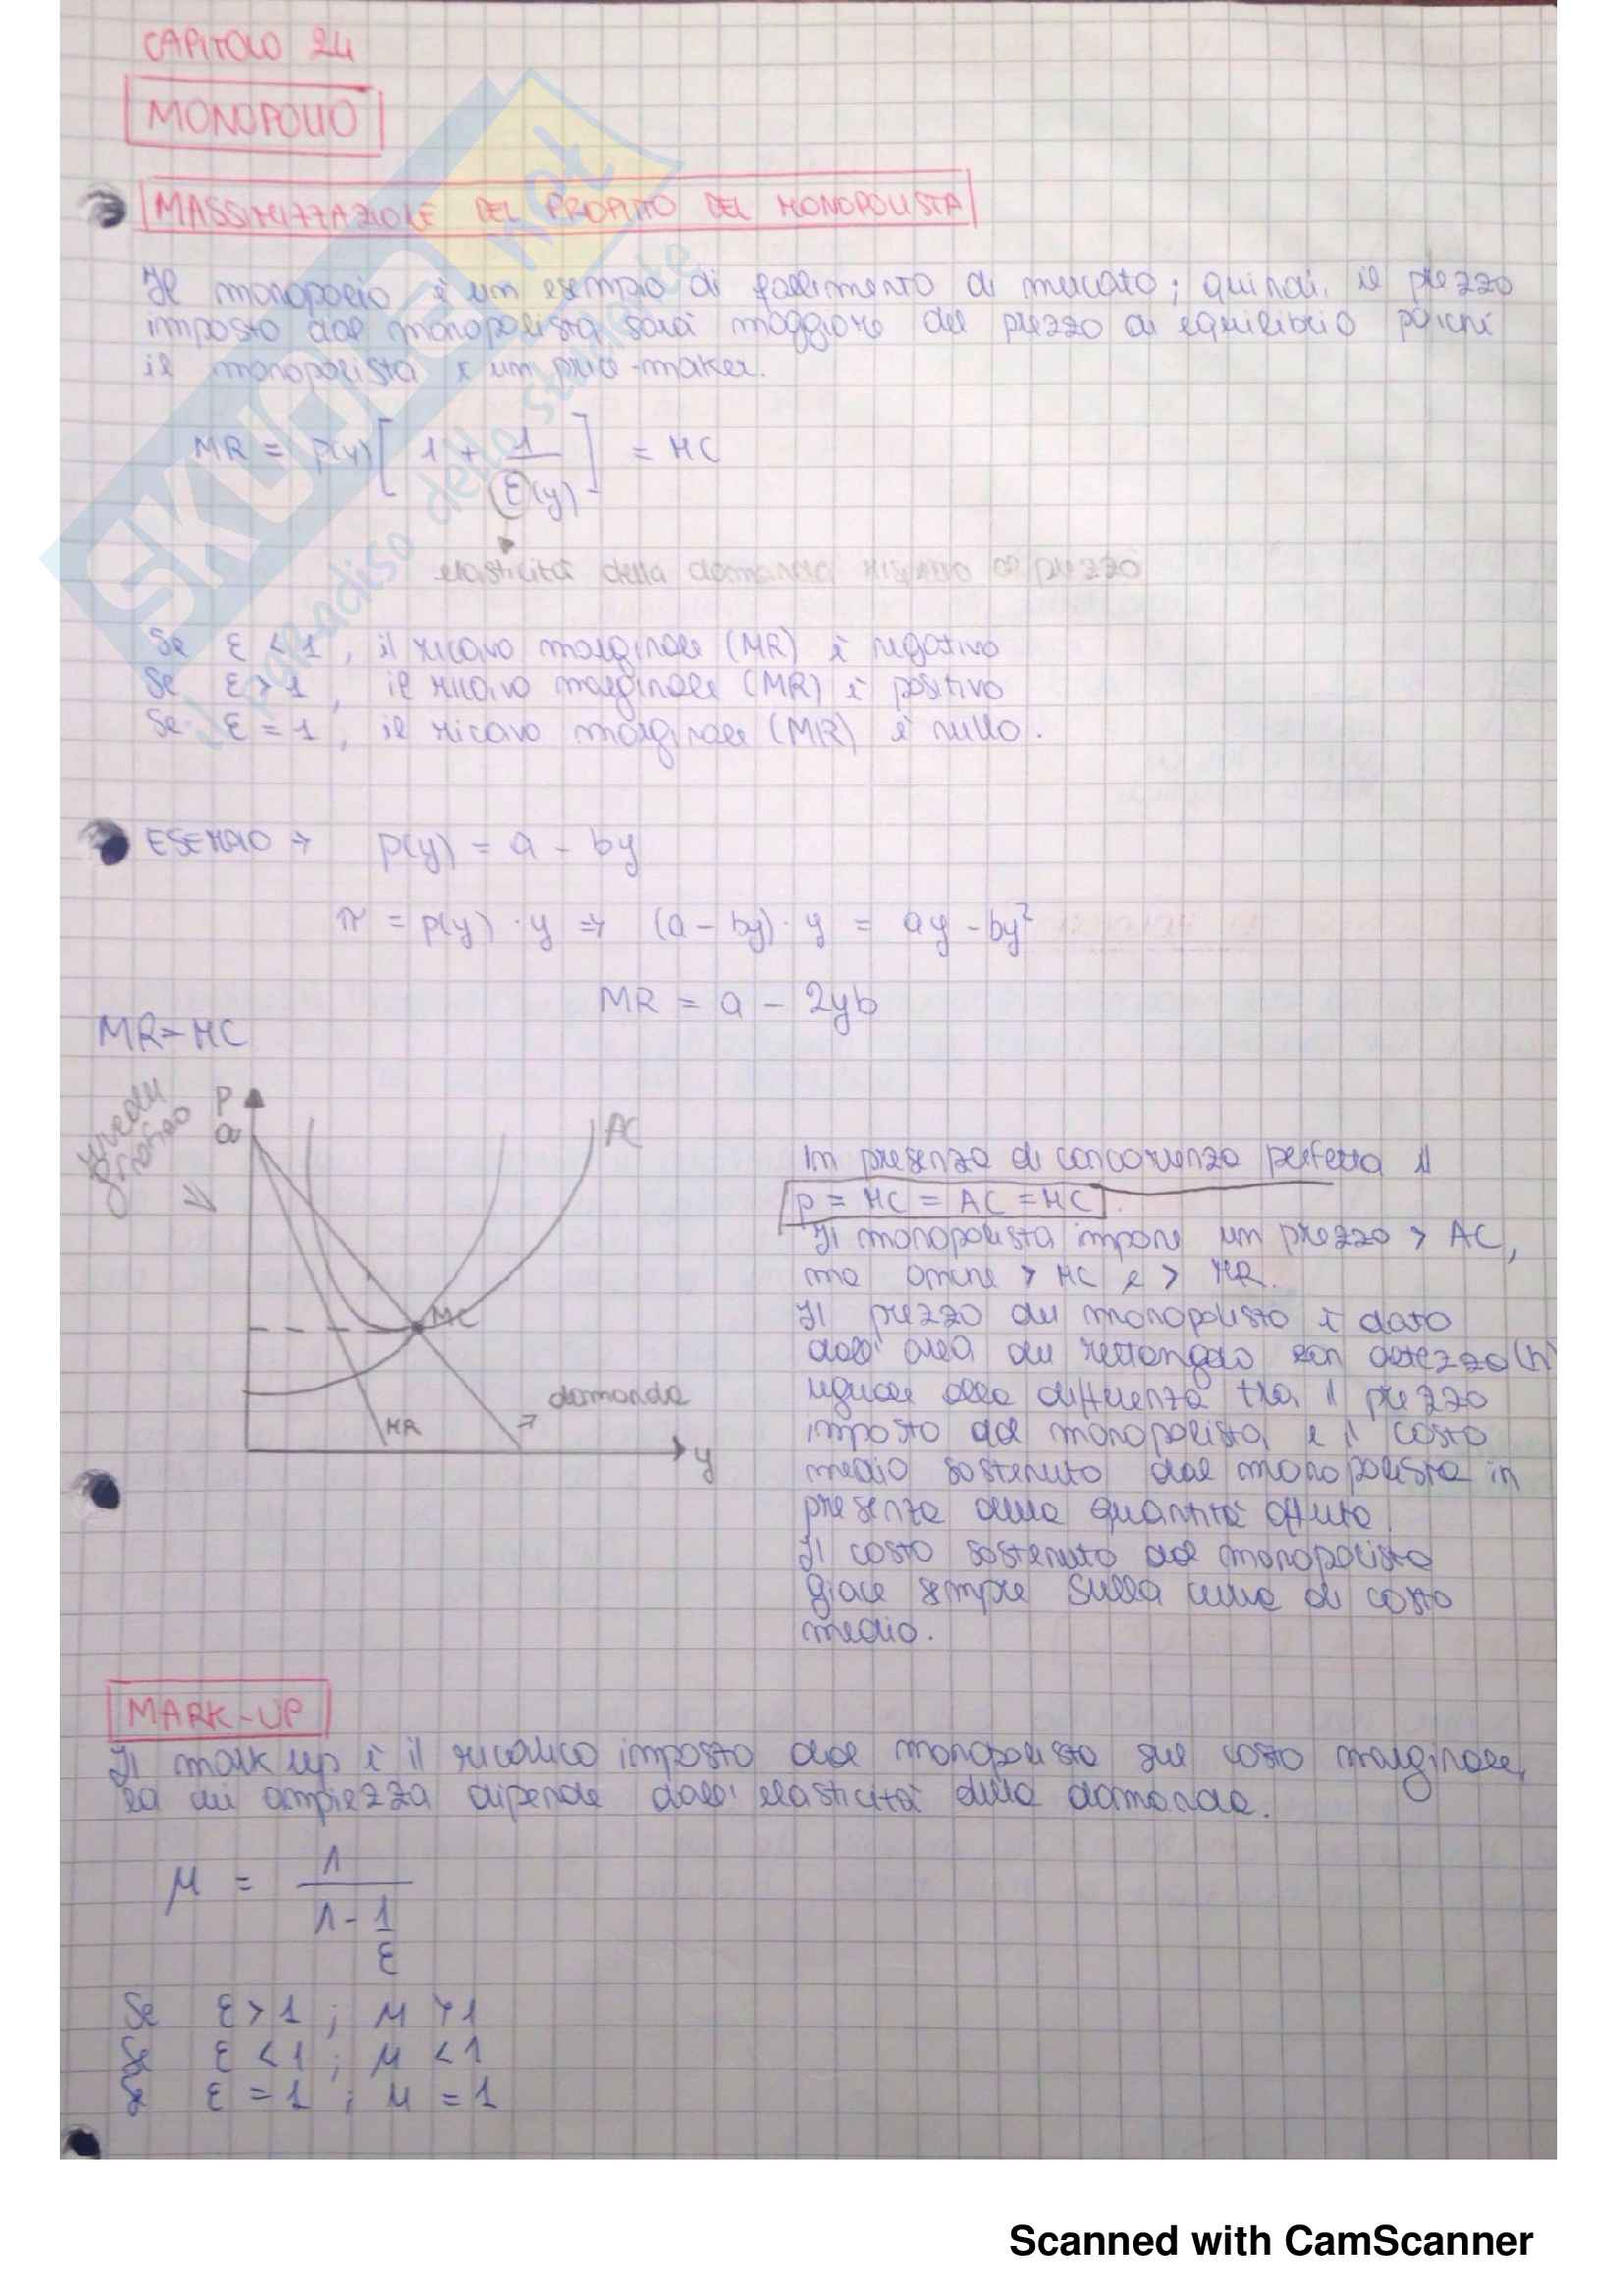 CAPITOLO 24
MONOPOLIO
MASSIMIZZAZIONE DEL PROFITTO DEL MONOPOLISTA
Il monopolio è un esempio di fallimento di mercato; quindi, il prezzo
imposto dal monopolista sarà maggiore del prezzo di equilibrio poiché
il monopolista è un price-maker.
MR = p(y) [ 1 + 1/ε(y) ] = MC
elasticità della domanda rispetto al prezzo
Se ε < 1, il ricavo marginale (MR) è negativo
Se ε > 1, il ricavo marginale (MR) è positivo
Se ε = 1, il ricavo marginale (MR) è nullo.
ESEMPIO → p(y) = a - by
π = p(y) · y ⇒ (a - by) · y = ay - by²
MR = a - 2yb
MR = MC
rivedi
grafico
P
a
AC
MC
domanda
MR
y
In presenza di concorrenza perfetta il
p = MC = AC = MC.
Il monopolista impone un prezzo > AC,
ma anche > MC e > MR.
Il prezzo del monopolista è dato
dall'area del rettangolo con altezza (h)
uguale alla differenza tra il prezzo
imposto dal monopolista e il costo
medio sostenuto dal monopolista in
presenza della quantità offerta
Il costo sostenuto dal monopolista
giace sempre sulla curva di costo
medio.
MARK-UP
Il mark up è il ricarico imposto dal monopolista sul costo marginale,
la cui ampiezza dipende dall'elasticità della domanda.
μ = 1 / (1 - 1/ε)
Se ε > 1 ; μ > 1
Se ε < 1 ; μ < 1
Se ε = 1 ; μ = 1
SKUOLA.net
il paradiso dello studente
Scanned with CamScanner